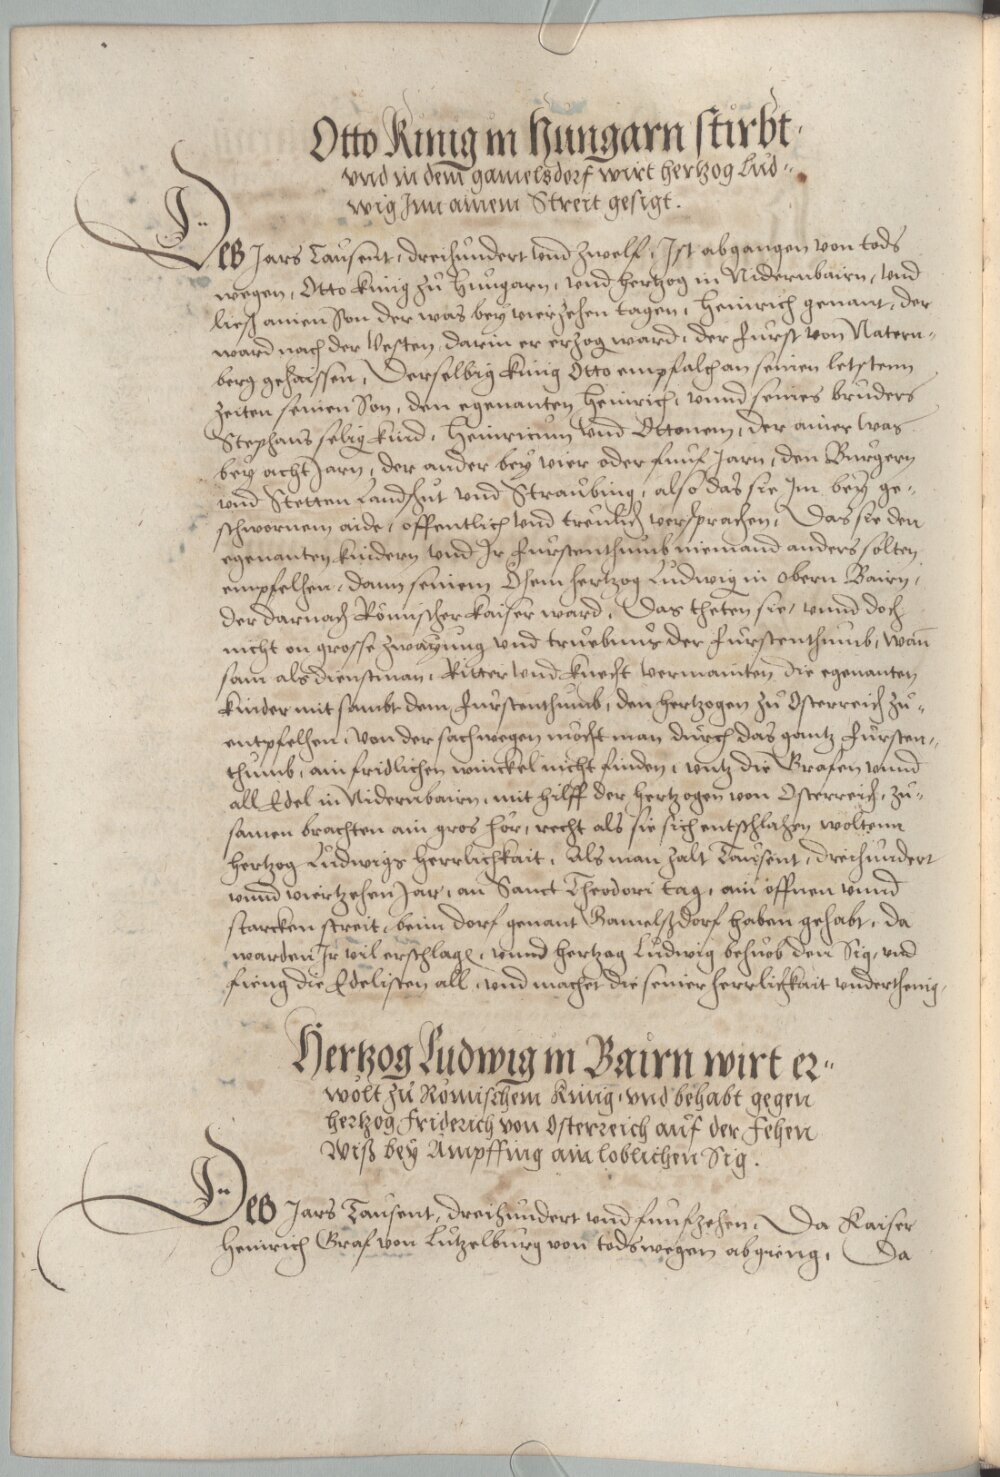 Otto Kinig in Hungarn stirbt,
vnd in dem gamelsdorf wirt hertzog Lud-
wig Inn ainem Streit gesigt.
Des Jars Tausent, dreihundert vnd zwelf, Ist abgangen von tods
wegen, Otto kinig zů Hungarn, vnd hertzog in Nidernbairn, vnd
ließ ainen Son der was bey vierzehen tagen, Heinrich genant, der
ward nach der Vesten, darin er erzog ward, der Fürst von Natern-
berg gehaissen, Derselbig kinig Otto empfalch an seinen letstenn
zeiten seinen Son, den egenanten Heinrich, vnnd seines brůders
Stephans selig kind, Heinricum vnd Ottonem, der ainer was
bey acht Jarn, der ander bey vier oder funf Jarn, den Burgern
vnd Stetten Landshut vnd Straubing, also das sie Im bey ge-
schwornem aide, offentlich vnd treulich versprachen, Das sie den
egenanten kindern vnd Ir Fürstenthumb niemand anders solten
empfelhen, dann seinem Öhem hertzog Ludwig in obern Bairn,
der darnach Römischer kaiser ward, Das theten sie, vnnd doch
nicht on grosse zwayung vnd truebnus der Fürstenthumb, wan̄
sam als dienstman, Ritter vnd knecht vermainten die egenanten
kinder mit sambt dem Fürstenthumb, den hertzogen zů Osterreich zů-
entpfelhen, von der sach wegen möcht man durch das gantz Fürsten-
thumb, ain fridlichen winckel nicht finden, vntz die Grafen vnnd
all Edel in Nidernbairn, mit hilff der hertzogen von Osterreich, zů-
samen brachten ain gros hör, recht als sie sich entschlahen woltenn
hertzog Ludwigs Herrlichkait, Als man zalt Tausent, dreihundert
vnnd viertzehen Jar, an Sanct Theodori tag, ain offnen vnnd
starcken streit, beim dorf genant Gamelßdorf haben gehabt, da
warden Ir vil erschlagē, vnnd hertzog Ludwig behuob den Sig, vnd
fieng die Edelisten all, vnd machet die seiner herrlichkait vnderthenig,
Hertzog Ludwig in Bairn wirt er-
wölt zů Römischem Künig, vnd behabt gegen
hertzog Friderich von Osterreich auf der Fehen
Wiß bey Ampffing ain loblichen Sig.
Des Jars Tausent, dreihundert vnd funfzehen, Da Kaiser
Heinrich Graf von Lützelburg von tods wegen abgieng, Da